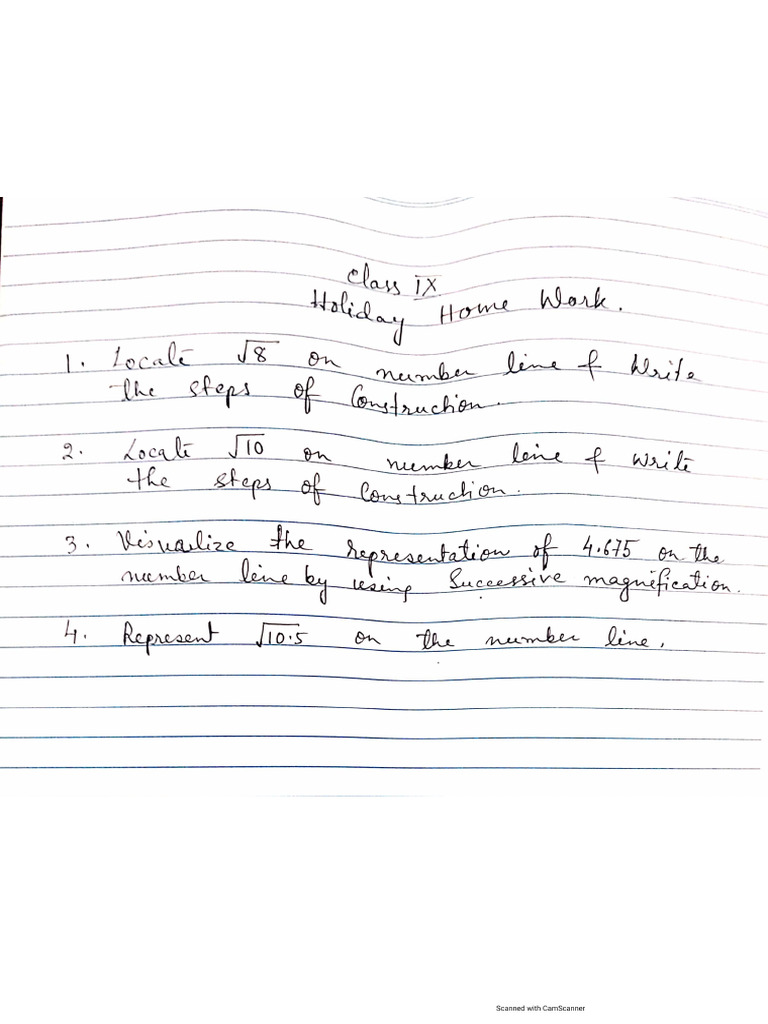 Class IX
Holiday Home Work.
1. Locate √8 on number line & Write
the steps of Construction.
2. Locate √10 on number line & write
the steps of Construction.
3. Visualize the representation of 4.675 on the
number line by using Successive magnification.
4. Represent √10.5 on the number line.
Scanned with CamScanner